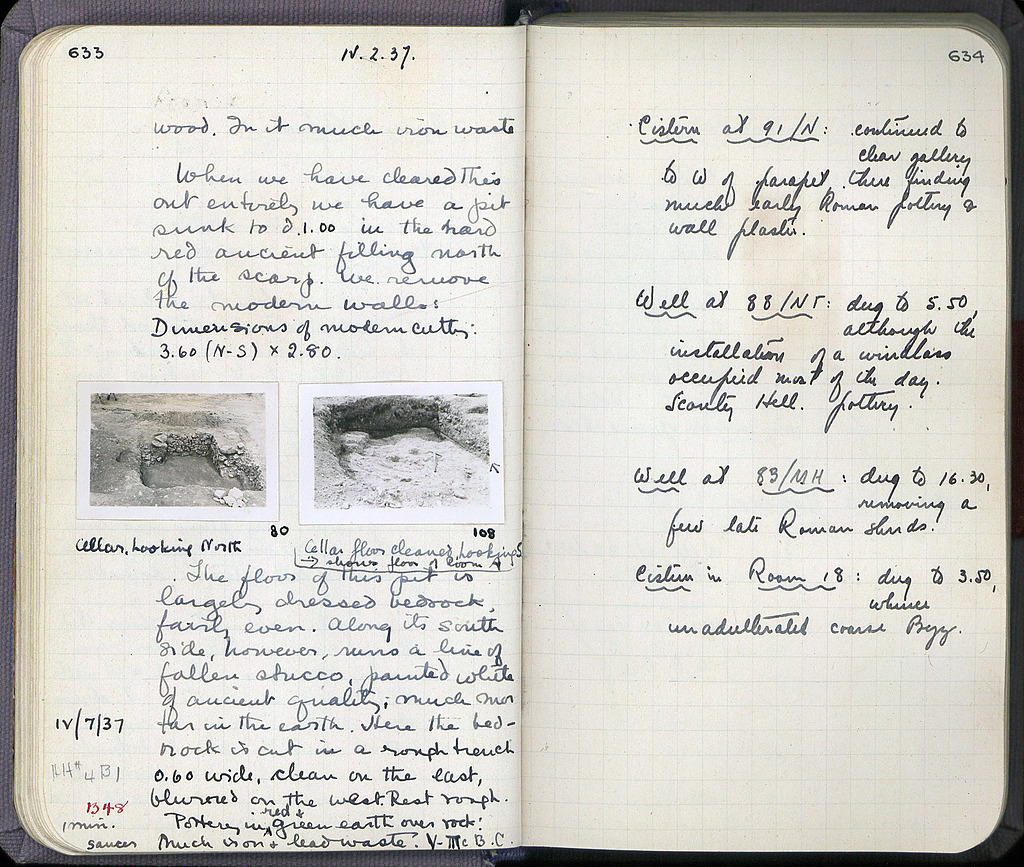 633
IV.2.37.
wood. In it much iron waste
When we have cleared this
out entirely we have a pit
sunk to d.1.00 in the hard
red ancient filling north
of the scarp. We remove
the modern walls:
Dimensions of modern cutting:
3.60 (N-S) × 2.80.
80
Cellar, Looking North
108
Cellar floor cleaned, Looking S
→ shows floor of Room
The floor of this pit is
largely dressed bedrock,
fairly even. Along its south
side, however, runs a line of
fallen stucco, painted white
of ancient quality; much mor
tar in the earth. Here the bed-
rock is cut in a rough trench
0.60 wide, clean on the east,
blurred on the west. Rest rough.
Pottery in red & green earth over rock!
Much iron & lead waste. V-III c B.C.
IV/7/37
1348
1 min.
saucer
634
Cistern at 91/N: continued to
clear gallery
to W of parapet, there finding
much early Roman pottery &
wall plaster.
Well at 88/NT: dug to 5.50,
although the
installation of a windlass
occupied most of the day.
Scanty Hell. pottery.
Well at 83/MH: dug to 16.30,
removing a
few late Roman sherds.
Cistern in Room 18: dug to 3.50,
whence
unadulterated coarse Byz.